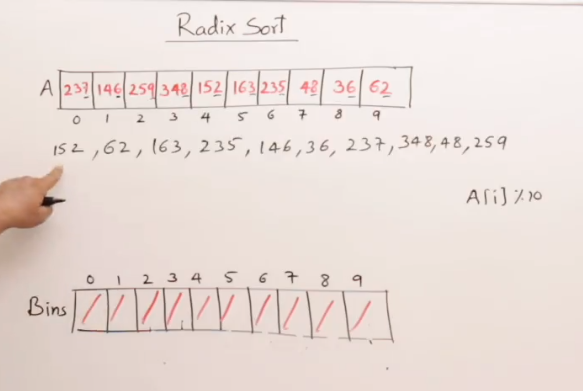 Radix Sort
A 237 146 259 348 152 163 235 48 36 62
0 1 2 3 4 5 6 7 8 9
152, 62, 163, 235, 146, 36, 237, 348, 48, 259
A[i] % 10
0 1 2 3 4 5 6 7 8 9
Bins / / / / / / / / / /